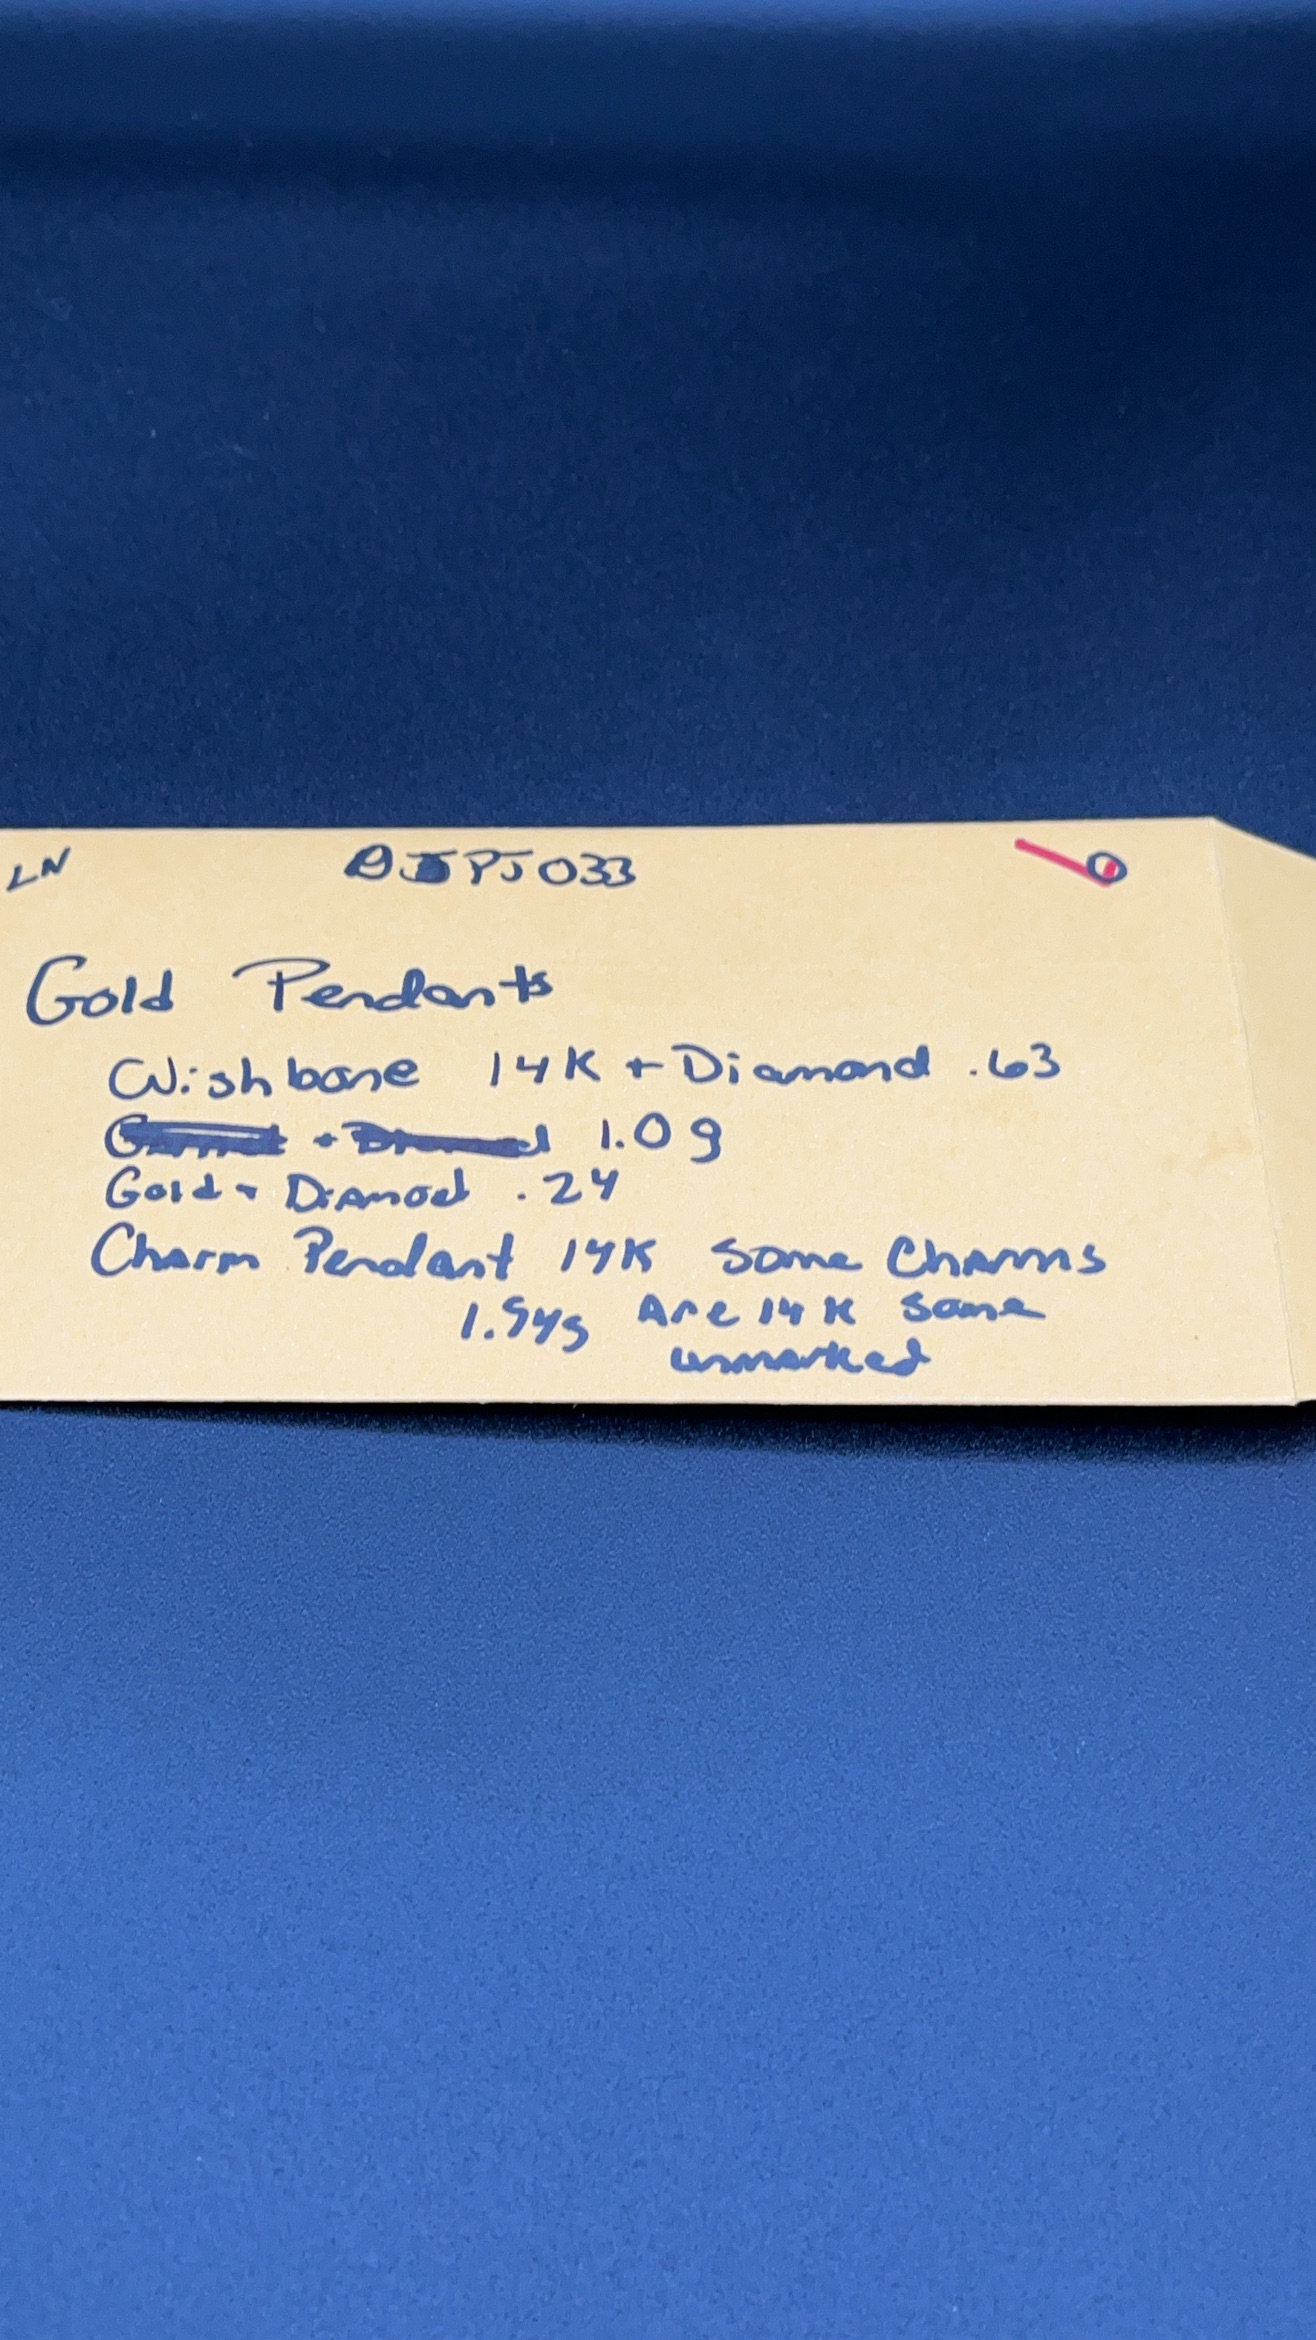 LN PJ033
Gold Pendants
Wishbone 14K + Diamond .63
+ 1.0g
Gold + Diamod .24
Charm Pendant 14K some Charms
1.54g Are 14K some
unmarked